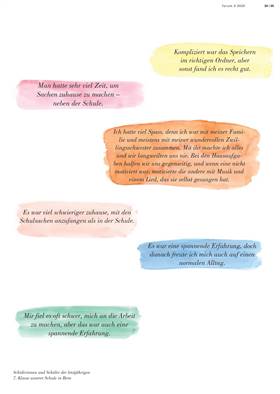 Forum 3 2020
Kompliziert war das Speichern
im richtigen Ordner, aber
sonst fand ich es recht gut.
Man hatte sehr viel Zeit, um
Sachen zuhause zu machen –
neben der Schule.
Ich hatte viel Spass, denn ich war mit meiner Fami-
lie und meistens mit meiner wundervollen Zwil-
lingsschwester zusammen. Mit ihr machte ich alles
und wir langweilten uns nie. Bei den Hausaufga-
ben halfen wir uns gegenseitig, und wenn eine nicht
motiviert war, motivierte die andere mit Musik und
einem Lied, das sie selbst gesungen hat.
Es war viel schwieriger zuhause, mit den
Schulsachen anzufangen als in der Schule.
Es war eine spannende Erfahrung, doch
danach freute ich mich auch auf einen
normalen Alltag.
Mir fiel es oft schwer, mich an die Arbeit
zu machen, aber das war auch eine
spannende Erfahrung.
Schülerinnen und Schüler der letztjährigen
7. Klasse unserer Schule in Bern